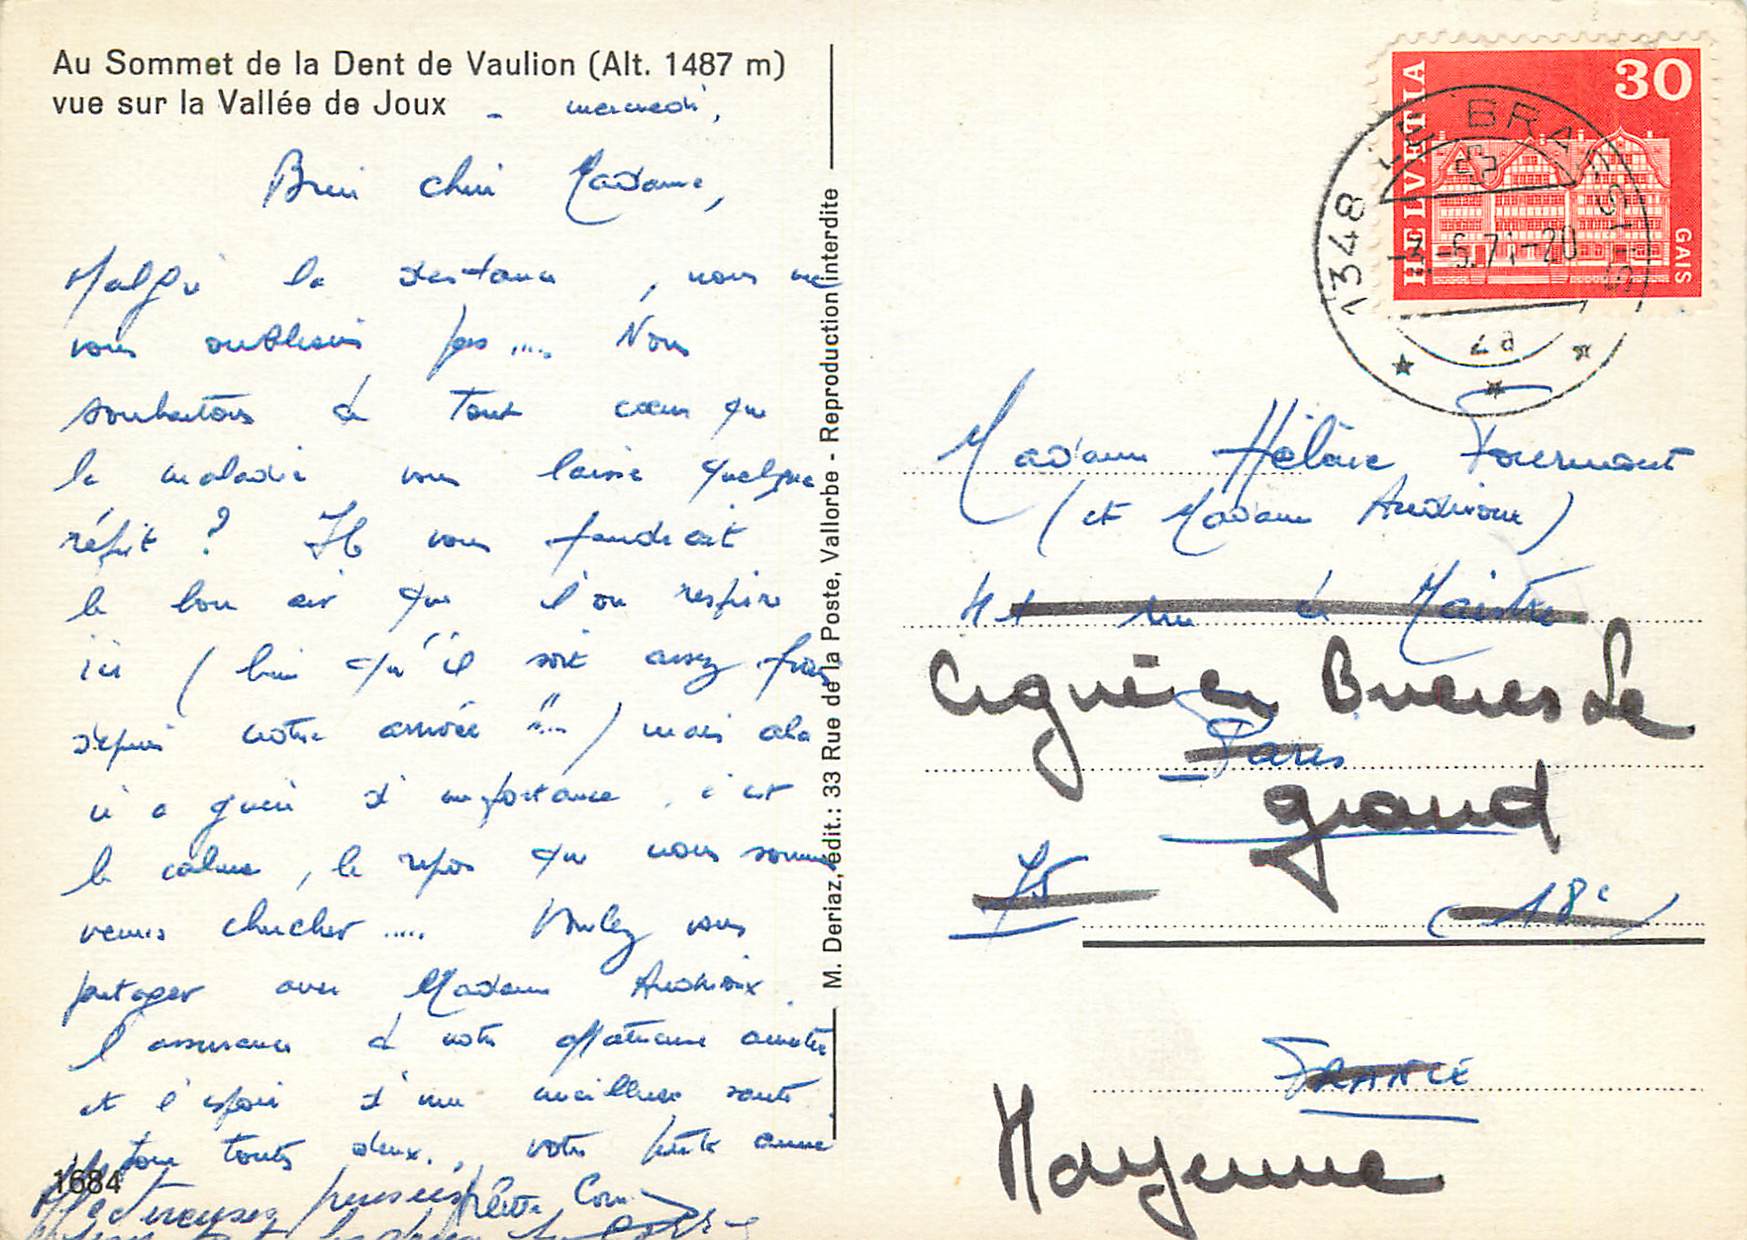 Au Sommet de la Dent de Vaulion (Alt. 1487 m)
vue sur la Vallée de Joux
mercredi,
Bien chère Madame,
Malgré la distance, nous ne
vous oublions pas .... Nous
souhaitons de tout cœur que
la maladie vous laisse quelque
répit ? Il vous faudrait
le bon air que l'on respire
ici (bien qu'il soit assez frais
depuis notre arrivée !!...) mais cela
n'a guère d'importance, c'est
le calme, le repos que nous sommes
venus chercher ..... Voulez vous
partager avec Madame Andrioux
l'assurance de notre affectueuse amitié
et l'espoir d'une meilleure santé
pour toutes deux., votre petite amie
1684
Affectueuses pensées
M. Deriaz, édit.: 33 Rue de la Poste, Vallorbe - Reproduction interdite
HELVETIA
30
GAIS
1348 LE BRASSUS
-3.-6.71-20
2a
Madame Hélène Fourmont
(et Madame Andrioux)
41 rue de Maistre
Paris
75 (18e)
FRANCE
Bueres Le
grand
Mayenne